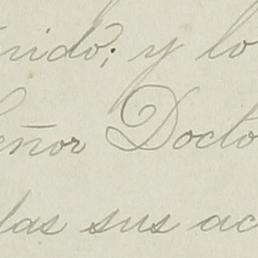 nido; y lo
eñor Docto
las sus ac